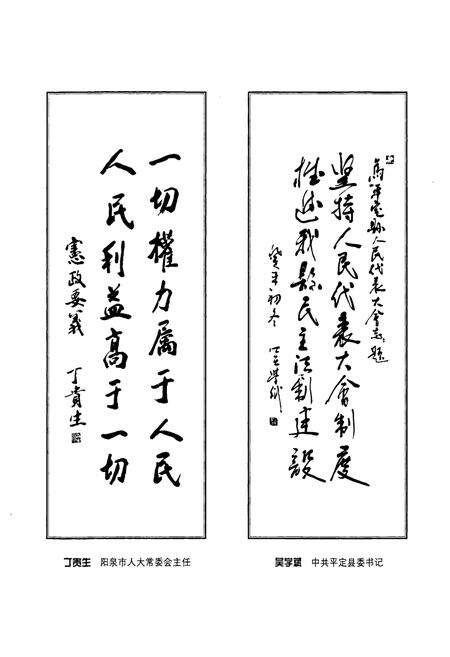 一切權力属于人民
人民利益高于一切
憲政要義
丁貴生
丁贵生 阳泉市人大常委会主任
為平定縣人民代表大會志題
坚持人民代表大會制度
推进我縣民主法制建設
癸未初冬
吴学斌 中共平定县委书记